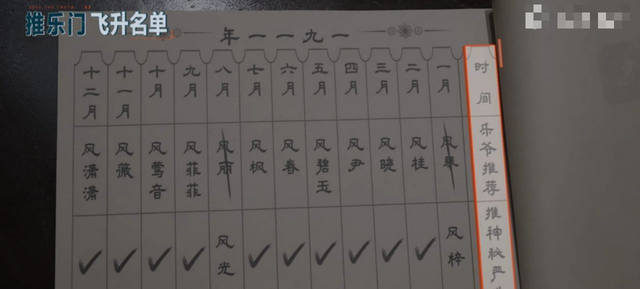 推乐门 飞升名单
一九一一年
时间
乐爷推荐
推神秘严
一月
风琴
风梓
二月
风桂
三月
风晓
四月
风尹
五月
风碧玉
六月
风春
七月
风枫
八月
风丽
风光
九月
风菲菲
十月
风莺音
十一月
风薇
十二月
风潇潇